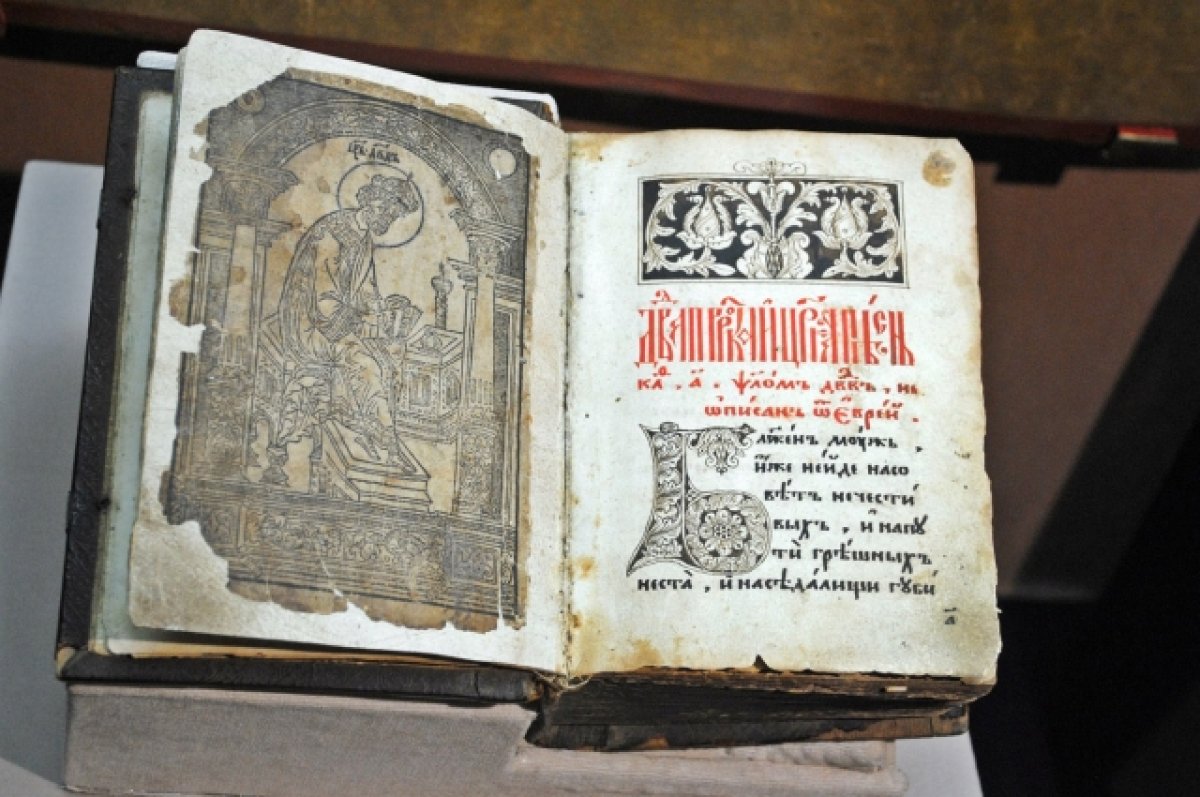 цр҃ь двⷣъ
двⷣа прⷪ҇рока и цр҃ѧ пѣснь
каⷪ҇ . а҃ . ѱⷧ҇ом двⷣъ , не
ѡписанъ ѿ є҆врє́й .
Блаже́нъ мꙋ́жъ ,
и҆́же не и҆́де на со
вѣ́тъ нечести́
выхъ , и҆ на пꙋ
тѝ грѣ́шныхъ
не ста̀ , и҆ на сѣда́лищи гꙋби́